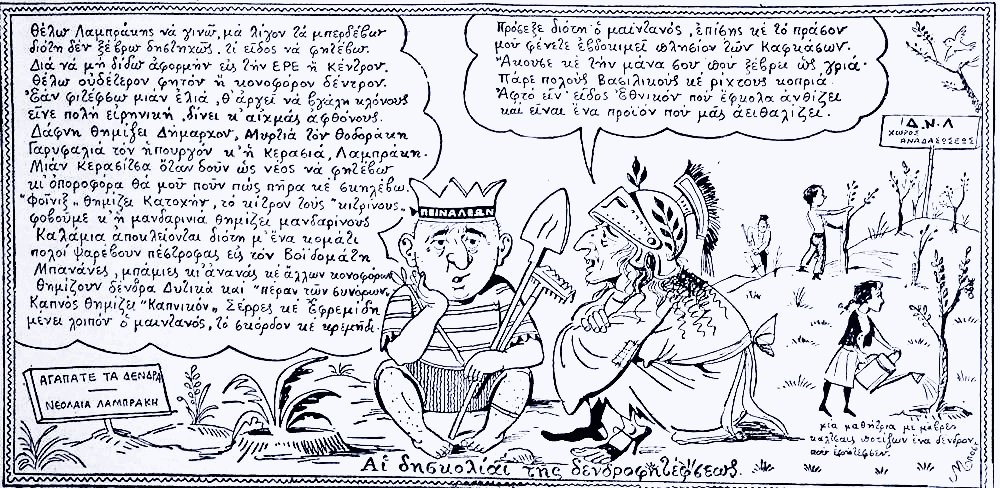 Θέλω Λαμπράκης νά γινῶ, μά λίγον τά μπερδέβω
διότη δέν ξέβρω δηστηχῶς, τί εἶδος νά φητέβω.
Διά νά μή δίδω ἀφορμήν εἰς τήν ΕΡΕ ἤ Κέντρον.
Θέλω οὐδέτερον φητόν ἤ κονοφόρον δέντρον.
Ἐάν φιτέφσω μιάν ἐλιά, θ' ἀργεῖ νά βγάλη κλόνους
εἶνε πολή εἰρηνική, δίνει κ' αἰχμάς ἀφθόνους.
Δάφνη θημίζει Δήμαρχον, Μυρτιά τόν Θοδοράκη
Γαρυφαλιά τόν ἠπουργόν κ' ἡ Κερασιά, Λαμπράκη.
Μιάν Κερασίτσα ὅταν δοῦν ὡς νέος νά φητέβω
κι ὀποροφορα θά μοῦ ποῦν πώς πῆρα κέ σιηλέβω.
"Φοῖνιξ" θημίζει Κατοχήν, τό κίτρον τούς "κιτρίνους"
φοβοῦμε κ' ἡ μανδαρινιά θημίζει μανδαρίνους
Καλάμια ἀποκλείονται διότη μ' ἕνα κομάτι
πολοί ψαρέβουν πέστροφας εἰς τόν Βοϊδομάτη
Μπανάνες, μπάμιες κι' ἀνανάς κέ ἄλλων κονοφόρων
θημίζουν δένδρα Δυτικά καί "πέραν τῶν συνόρων.
Καπνός θημίζει "Καπνικόν" Σέρρες κέ Ἐφρεμίδη
μένει λοιπόν ὁ μαϊντανός, τό σκόρδον κέ κρεμήδι.
Πρόσεξε διότη ὁ μαϊντανός, ἐπίσης κέ τό πράσον
μοῦ φένετε εὐδοκιμεῖ πλησίον τῶν Καφκάσων.
Ἄκουσε κέ τήν μάνα σου πού ξέβρει ὡς γριά·
Πάρε πολούς Βασιλικούς κέ ρίχτους κοπριά
Ἀφτό εἶν' εἶδος Ἐθνικόν πού ἔφκολα ἀνθίζει
καί εἶναι ἕνα προϊόν πού μᾶς ἀειθαλίζει.
ΠΕΙΝΑΛΕΩΝ
Δ.Ν.Λ
ΧΩΡΟΣ
ΑΝΑΔΑΣΩΣΕΩΣ
ΑΓΑΠΑΤΕ ΤΑ ΔΕΝΔΡΑ
ΝΕΟΛΑΙΑ ΛΑΜΠΡΑΚΗ
μία μαθήτρια μέ μάβρες
κάλτσαις ποτίζων ἕνα δένδρον
πού ἐφύτεφσεν.
Αἱ δησκολίαι τῆς δενδροφητέφσεως.